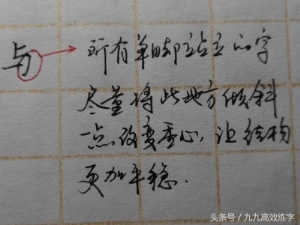 与 所有单脚站立的字
尽量将此地方倾斜
一点改变重心，让结构
更加平稳.
头条号 / 九九高效练字